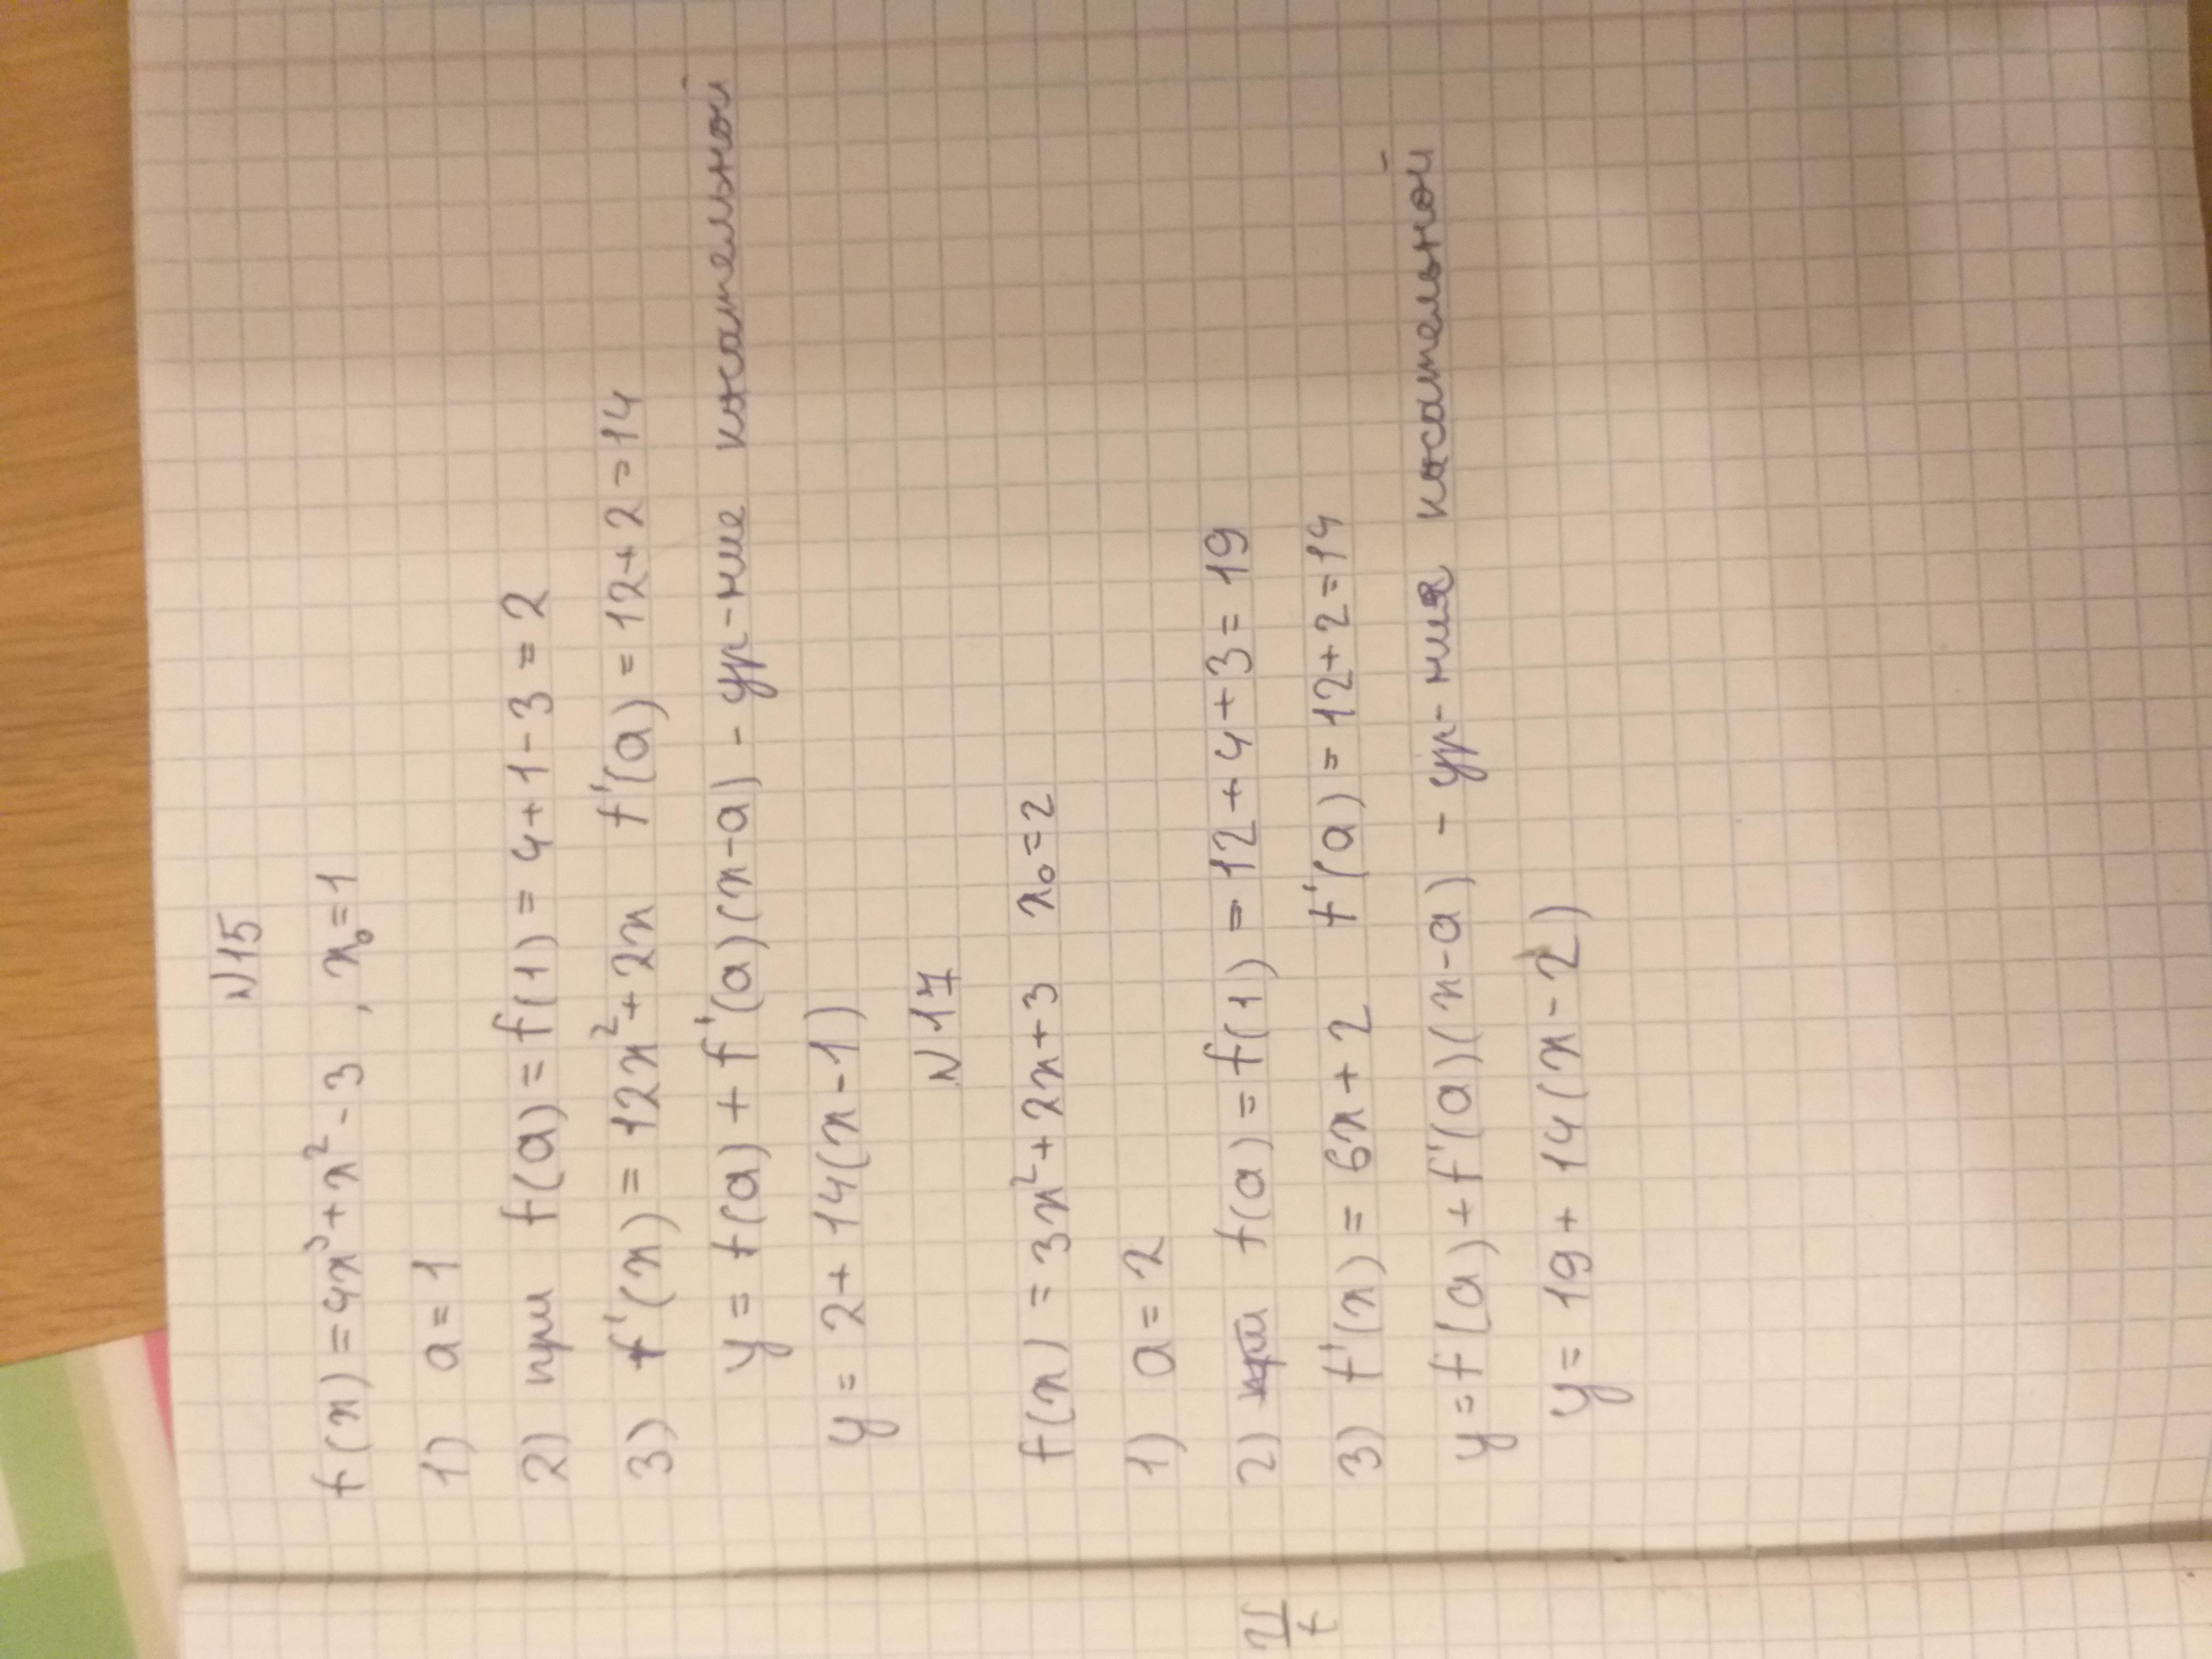 N15
f(x) = 4x³+x²-3 , x₀=1
1) a=1
2) при f(a) = f(1) = 4+1-3 = 2
3) f'(x) = 12x²+2x f'(a) = 12+2=14
y = f(a) + f'(a)(x-a) - ур-ние касательной
y = 2+ 14(x-1)
N17
f(x) = 3x²+2x+3 x₀=2
1) a=2
2) f(a) = f(1) = 12+4+3= 19
3) f'(x) = 6x+2 f'(a) = 12+2=14
y=f(a)+f'(a)(x-a) - ур-ния касательной
y= 19+ 14(x-2)